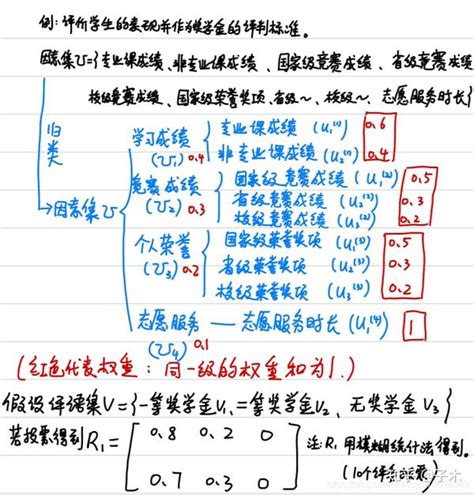 例：评价学生的表现并作为奖学金的评判标准。
因素集U={专业课成绩、非专业课成绩、国家级竞赛成绩、省级竞赛成绩
校级竞赛成绩、国家级荣誉奖项、省级～、校级～、志愿服务时长}
归类
因素集U
学习成绩 (U₁) 0.4
专业课成绩 (u₁⁽¹⁾) 0.6
非专业课成绩 (u₂⁽¹⁾) 0.4
竞赛成绩 (U₂) 0.3
国家级竞赛成绩 (u₁⁽²⁾) 0.5
省级竞赛成绩 (u₂⁽²⁾) 0.3
校级竞赛成绩 (u₃⁽²⁾) 0.2
个人荣誉 (U₃) 0.2
国家级荣誉奖项 (u₁⁽³⁾) 0.5
省级荣誉奖项 (u₂⁽³⁾) 0.3
校级荣誉奖项 (u₃⁽³⁾) 0.2
志愿服务 (U₄) 0.1
志愿服务时长 (u₁⁽⁴⁾) 1
(红色代表权重：同一级的权重和为1.)
假设评语集V={一等奖学金V₁,二等奖学金V₂、无奖学金V₃}
若投票得到R₁=
0.8 0.2 0
0.7 0.3 0
注:R₁用模糊统计法得到。